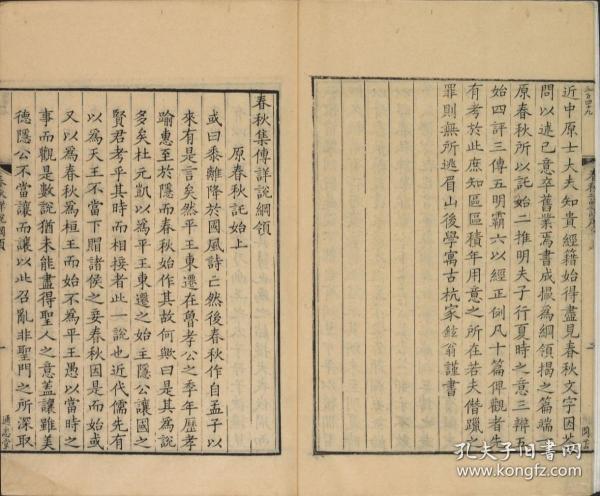 近中原士大夫知貴經籍始得盡見春秋文字因苦
問以述已意卒舊業焉書成撮為綱領揭之篇端
原春秋所以託始二推明夫子行夏時之意三辨五
始四評三傳五明霸六以經正例凡十篇俾觀者先
有考於此庶知區區積年用意之所在若夫僭躐之
罪則無所逃眉山後學寓古杭家鉉翁謹書
春秋集傳詳說綱領
原春秋託始上
或曰黍離降於國風詩亡然後春秋作自孟子以
來有是言矣然平王東遷在魯孝公之季年歷孝
踰惠至於隱而春秋始作其故何歟曰是其為說
多矣杜元凱以為平王東遷之始主隱公讓國之
賢君考乎其時而相接者此一說也近代儒先有
以為天王不當下賵諸侯之妾春秋因是而始或
又以為春秋為桓王而始不為平王愚以當時之
事而觀是數說猶未能盡得聖人之意蓋讓雖美
德隱公不當讓而讓以此召亂非聖門之所深取
通志堂
孔夫子旧書网
www.kongfz.com